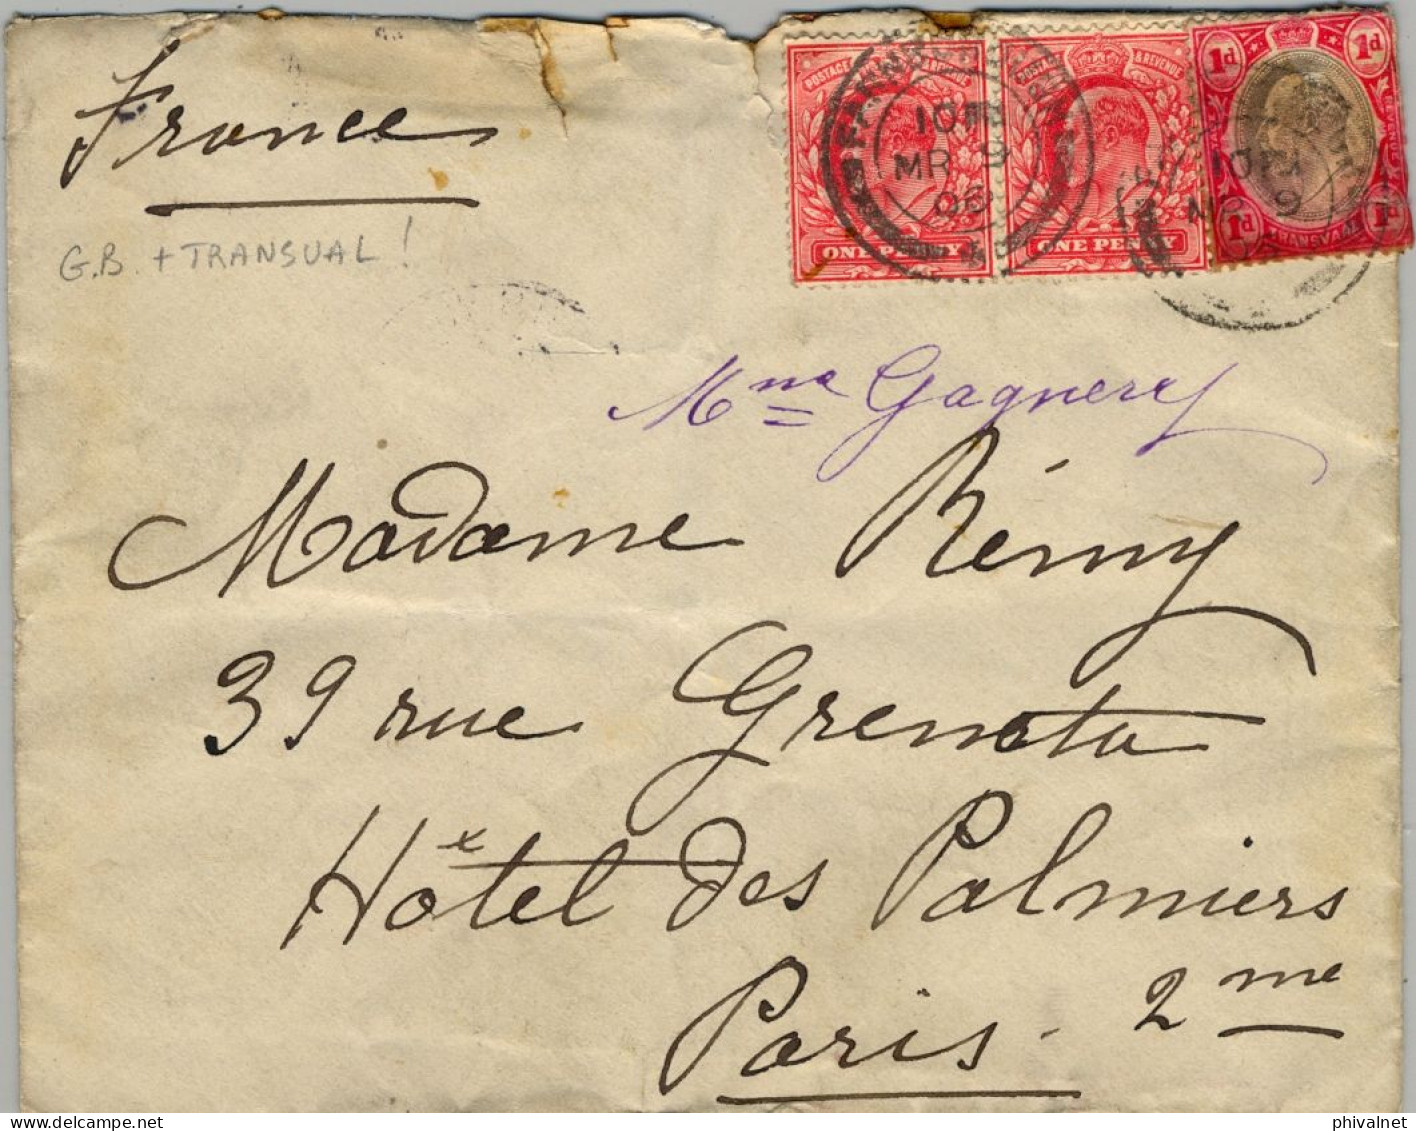 France
G.B. + TRANSUAL !
POSTAGE & REVENUE
ONE PENNY
POSTAGE & REVENUE
ONE PENNY
1d 1d
1d 1d
TRANSVAAL
10 PM
MR 9
06
10 PM
MR 9
06
Mme Gagnery
Madame Rémy
39 rue Greneta
Hôtel des Palmiers
Paris. 2me
delcampe.net
phivalnet